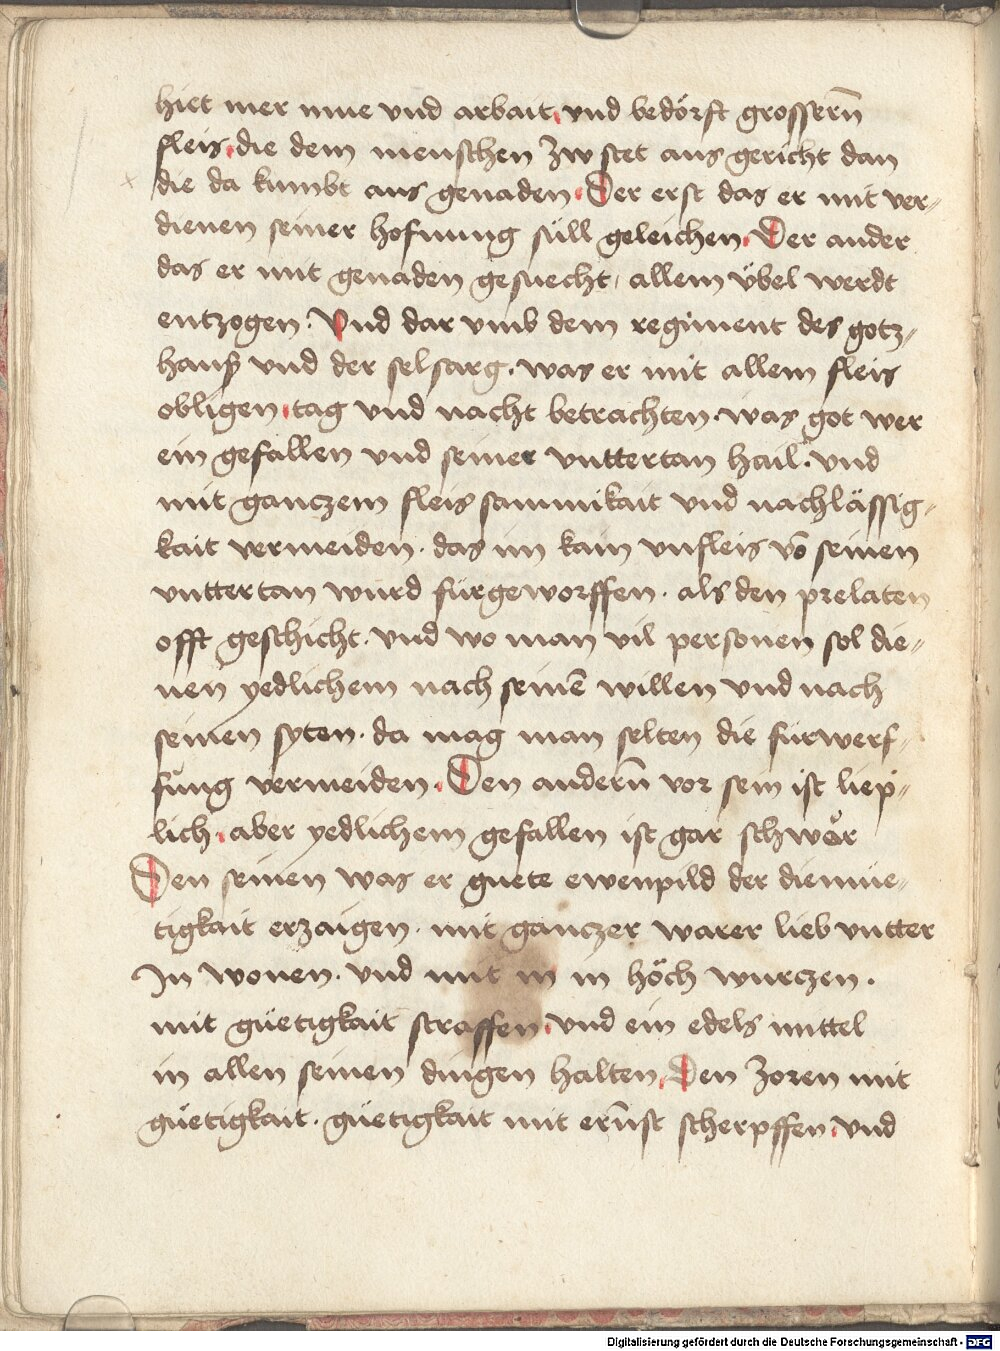 hiet mer mue vnd arbait, vnd bedörft grossern̄
fleis, die dem menschen zw stet aus gericht dan
die da kumbt aus genaden. Der erst das er mit ver-
dienen seiner hofnung süll geleichen. Der ander
das er mit genaden gesuecht, allem übel werdt
entzogen. Vnd dar vmb dem regiment des gotz-
haus vnd der selsarg. was er mit allem fleis
obligen, tag vnd nacht betrachten. was got wer
ein gefallen vnd seiner vnttertan hail. vnd
mit ganczem fleis sammikait vnd nachlässig-
kait vermeiden. das im kain vnfleis vō seinen
vnttertan wurd fürgeworffen. als den prelaten
offt geschicht. vnd wo man vil personen sol die-
nen yedlichem nach seinē willen vnd nach
seinen syten. da mag man selten die fürwerf-
fung vermeiden. Den andern̄ vor sein ist liep-
lich, aber yedlichem gefallen ist gar schwär
Den seinen was er guete ewenpild der diemue-
tigkait erzaigen. mit ganczer warer lieb vntter
In wonen. vnd mit in in höch wurczen.
mit güetigkait straffen, vnd ein edels mittel
in allen seinen dingen halten, Den zoren mit
güetigkait. güetigkait mit ern̄st scherpffen, vnd
Digitalisierung gefördert durch die Deutsche Forschungsgemeinschaft - DFG